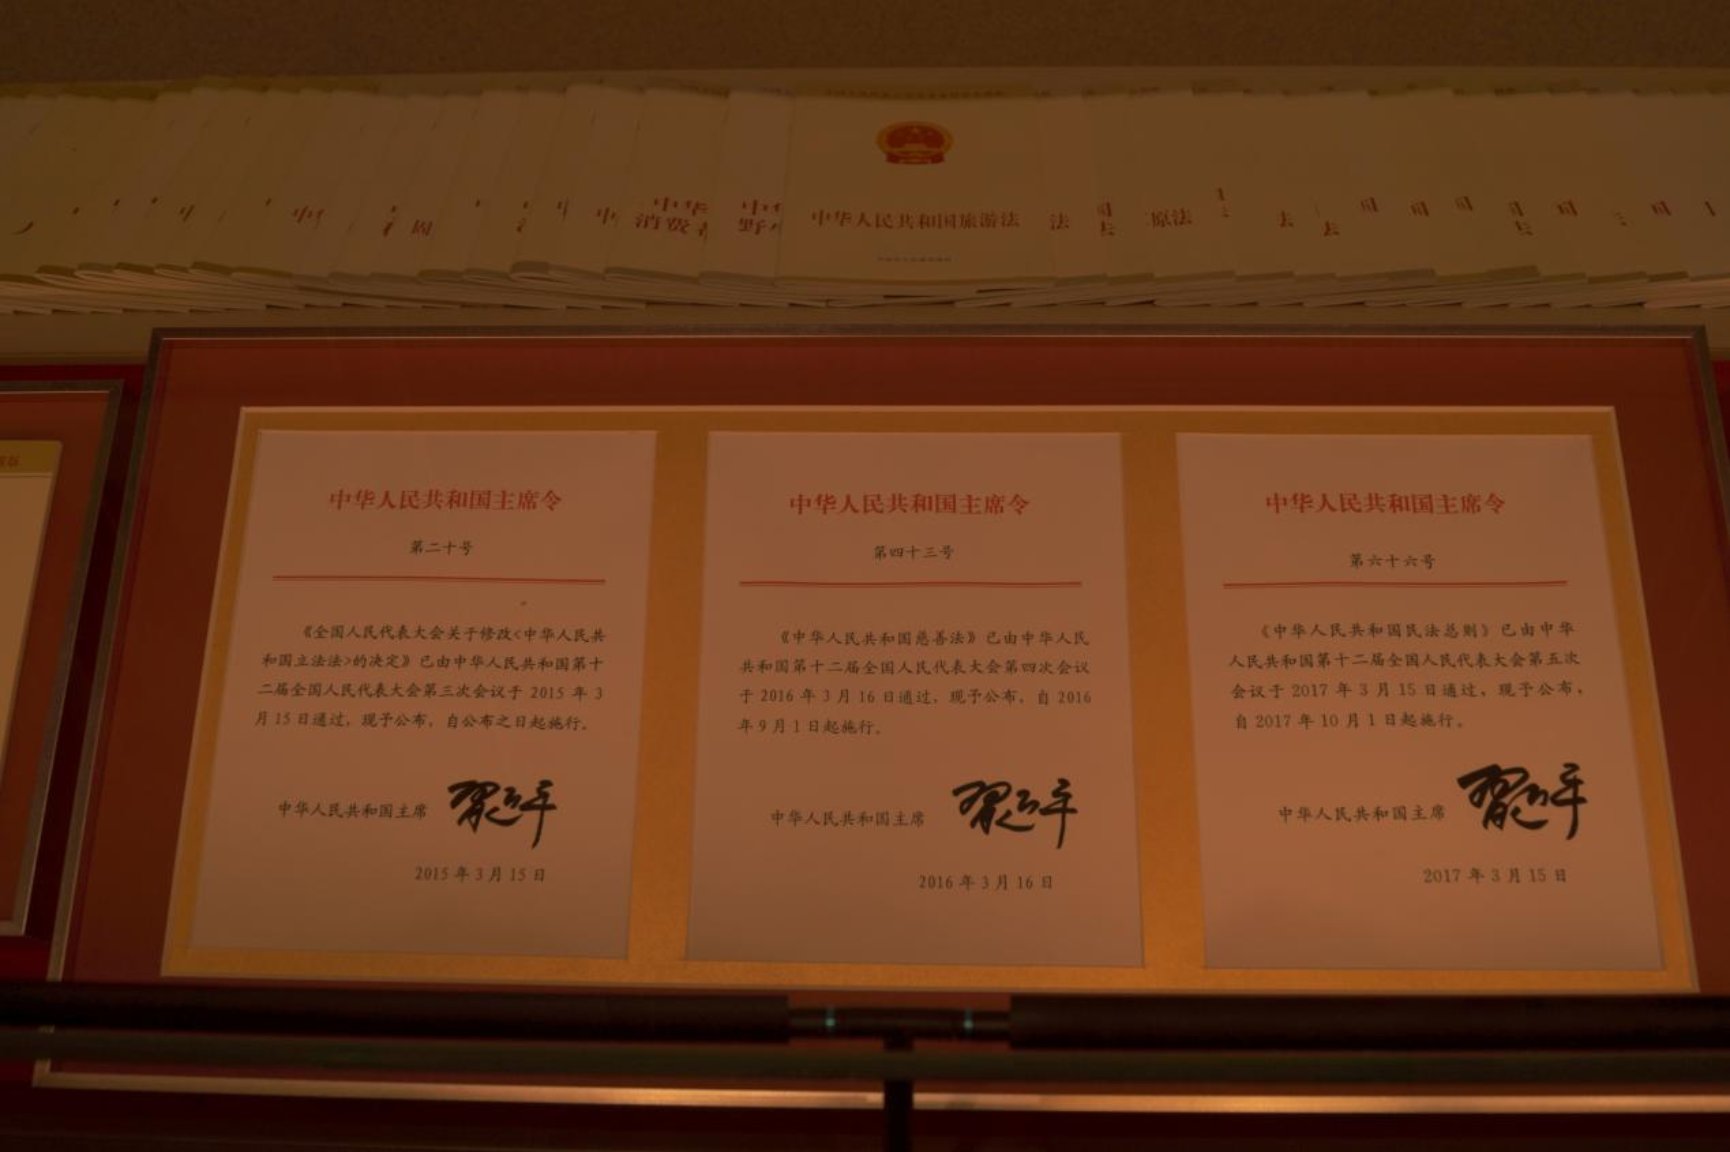 中华
消费
野
中华人民共和国旅游法
法
原法
中华人民共和国主席令
第二十号
《全国人民代表大会关于修改<中华人民共
和国立法法>的决定》已由中华人民共和国第十
二届全国人民代表大会第三次会议于 2015 年 3
月 15 日通过，现予公布，自公布之日起施行。
中华人民共和国主席 习近平
2015 年 3 月 15 日
中华人民共和国主席令
第四十三号
《中华人民共和国慈善法》已由中华人民
共和国第十二届全国人民代表大会第四次会议
于 2016 年 3 月 16 日通过，现予公布，自 2016
年 9 月 1 日起施行。
中华人民共和国主席 习近平
2016 年 3 月 16 日
中华人民共和国主席令
第六十六号
《中华人民共和国民法总则》已由中华
人民共和国第十二届全国人民代表大会第五次
会议于 2017 年 3 月 15 日通过，现予公布，
自 2017 年 10 月 1 日起施行。
中华人民共和国主席 习近平
2017 年 3 月 15 日